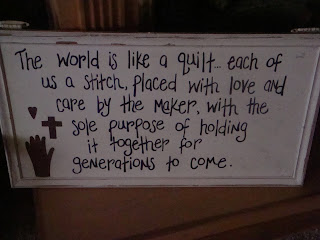 The world is like a quilt... each of
us a stitch, placed with love and
care by the maker, with the
sole purpose of holding
it together for
generations to come.